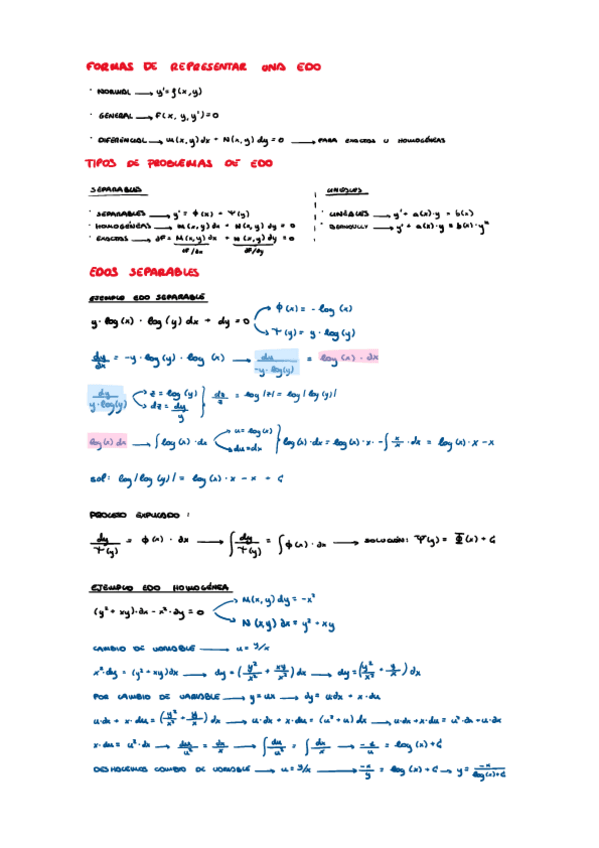 FORMAS DE REPRESENTAR UNA EDO
· NORMAL → y' = f(x,y)
· GENERAL → F(x, y, y') = 0
· DIFERENCIAL → M(x,y)dx + N(x,y)dy = 0 → PARA EXACTAS U HOMOGÉNEAS
TIPOS DE PROBLEMAS DE EDO
SEPARABLES
· SEPARABLES → y' = ϕ(x) · Ψ(y)
· HOMOGÉNEAS → M(x,y)dx + N(x,y)dy = 0
· EXACTAS → dF = M(x,y)dx + N(x,y)dy = 0
dF/dx dF/dy
LINEALES
· LINEALES → y' + a(x)·y = b(x)
· BERNOULLY → y' + a(x)·y = b(x)·yⁿ
EDOS SEPARABLES
EJEMPLO EDO SEPARABLE
y·log(x)·log(y)dx + dy = 0
ϕ(x) = -log(x)
Ψ(y) = y·log(y)
dy/dx = -y·log(y)·log(x) → dx/-y·log(y) = log(x)·dx
dy/y·log(y)
z = log(y)
dz = dy/y
dz/z = log|z| = log|log(y)|
log(x)dx → ∫log(x)·dx
u = log(x)
dv = dx
log(x)·dx = log(x)·x - ∫x/x·dx = log(x)·x - x
sol: log|log(y)| = log(x)·x - x + C
PROCESO EXPLICADO:
dy/Ψ(y) = ϕ(x)·dx → ∫dy/Ψ(y) = ∫ϕ(x)·dx → SOLUCIÓN: Ψ(y) = Φ(x) + C
EJEMPLO EDO HOMOGÉNEA
(y² + xy)·dx - x²·dy = 0
M(x,y)dy = -x²
N(x,y)dx = y² + xy
CAMBIO DE VARIABLE → u = y/x
x²·dy = (y² + xy)dx → dy = (y²/x² + xy/x²)dx → dy = (y²/x² + y/x)dx
POR CAMBIO DE VARIABLE → y = ux → dy = udx + x·du
u·dx + x·du = (y²/x² + y/x)dx → u·dx + x·du = (u² + u)dx → u·dx + x·du = u²·dx + u·dx
x·du = u²·dx → du/u² = dx/x → ∫du/u² = ∫dx/x → -1/u = log(x) + C
DESHACEMOS CAMBIO DE VARIABLE → u = y/x → -x/y = log(x) + C → y = -x/log(x)+C